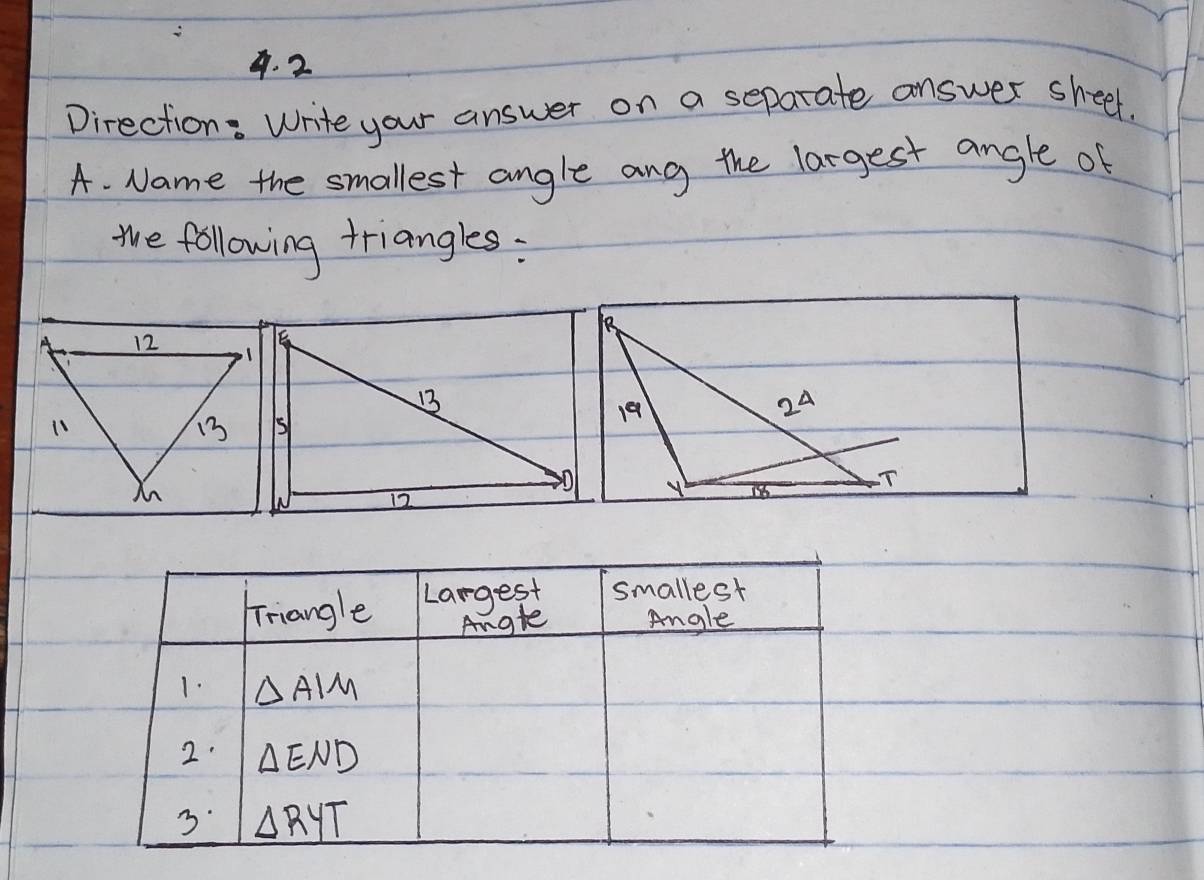 4.2
Direction: Write your answer on a separate answer sheet.
A. Name the smallest angle ang the largest angle of
the following triangles.
A 12 I
11 13
M
E
13
5
N 12 D
R
19 24
Y 18 T
Triangle Largest Angle Smallest Angle
1. △AIM
2. △END
3. △RYT